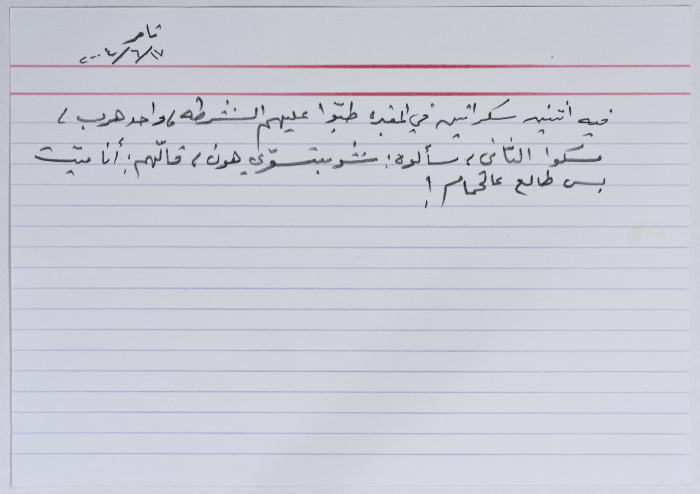 تامر
٢٠٠٤/٦/١٧
فيه اتنين سكرانين في المقبرة طبّوا عليهم الشرطه، واحد هرب،
مسكوا التاني، سألوه: شو بتسوّي هون، قالّهم: أنا ميّت
بس طالع عالحمام!